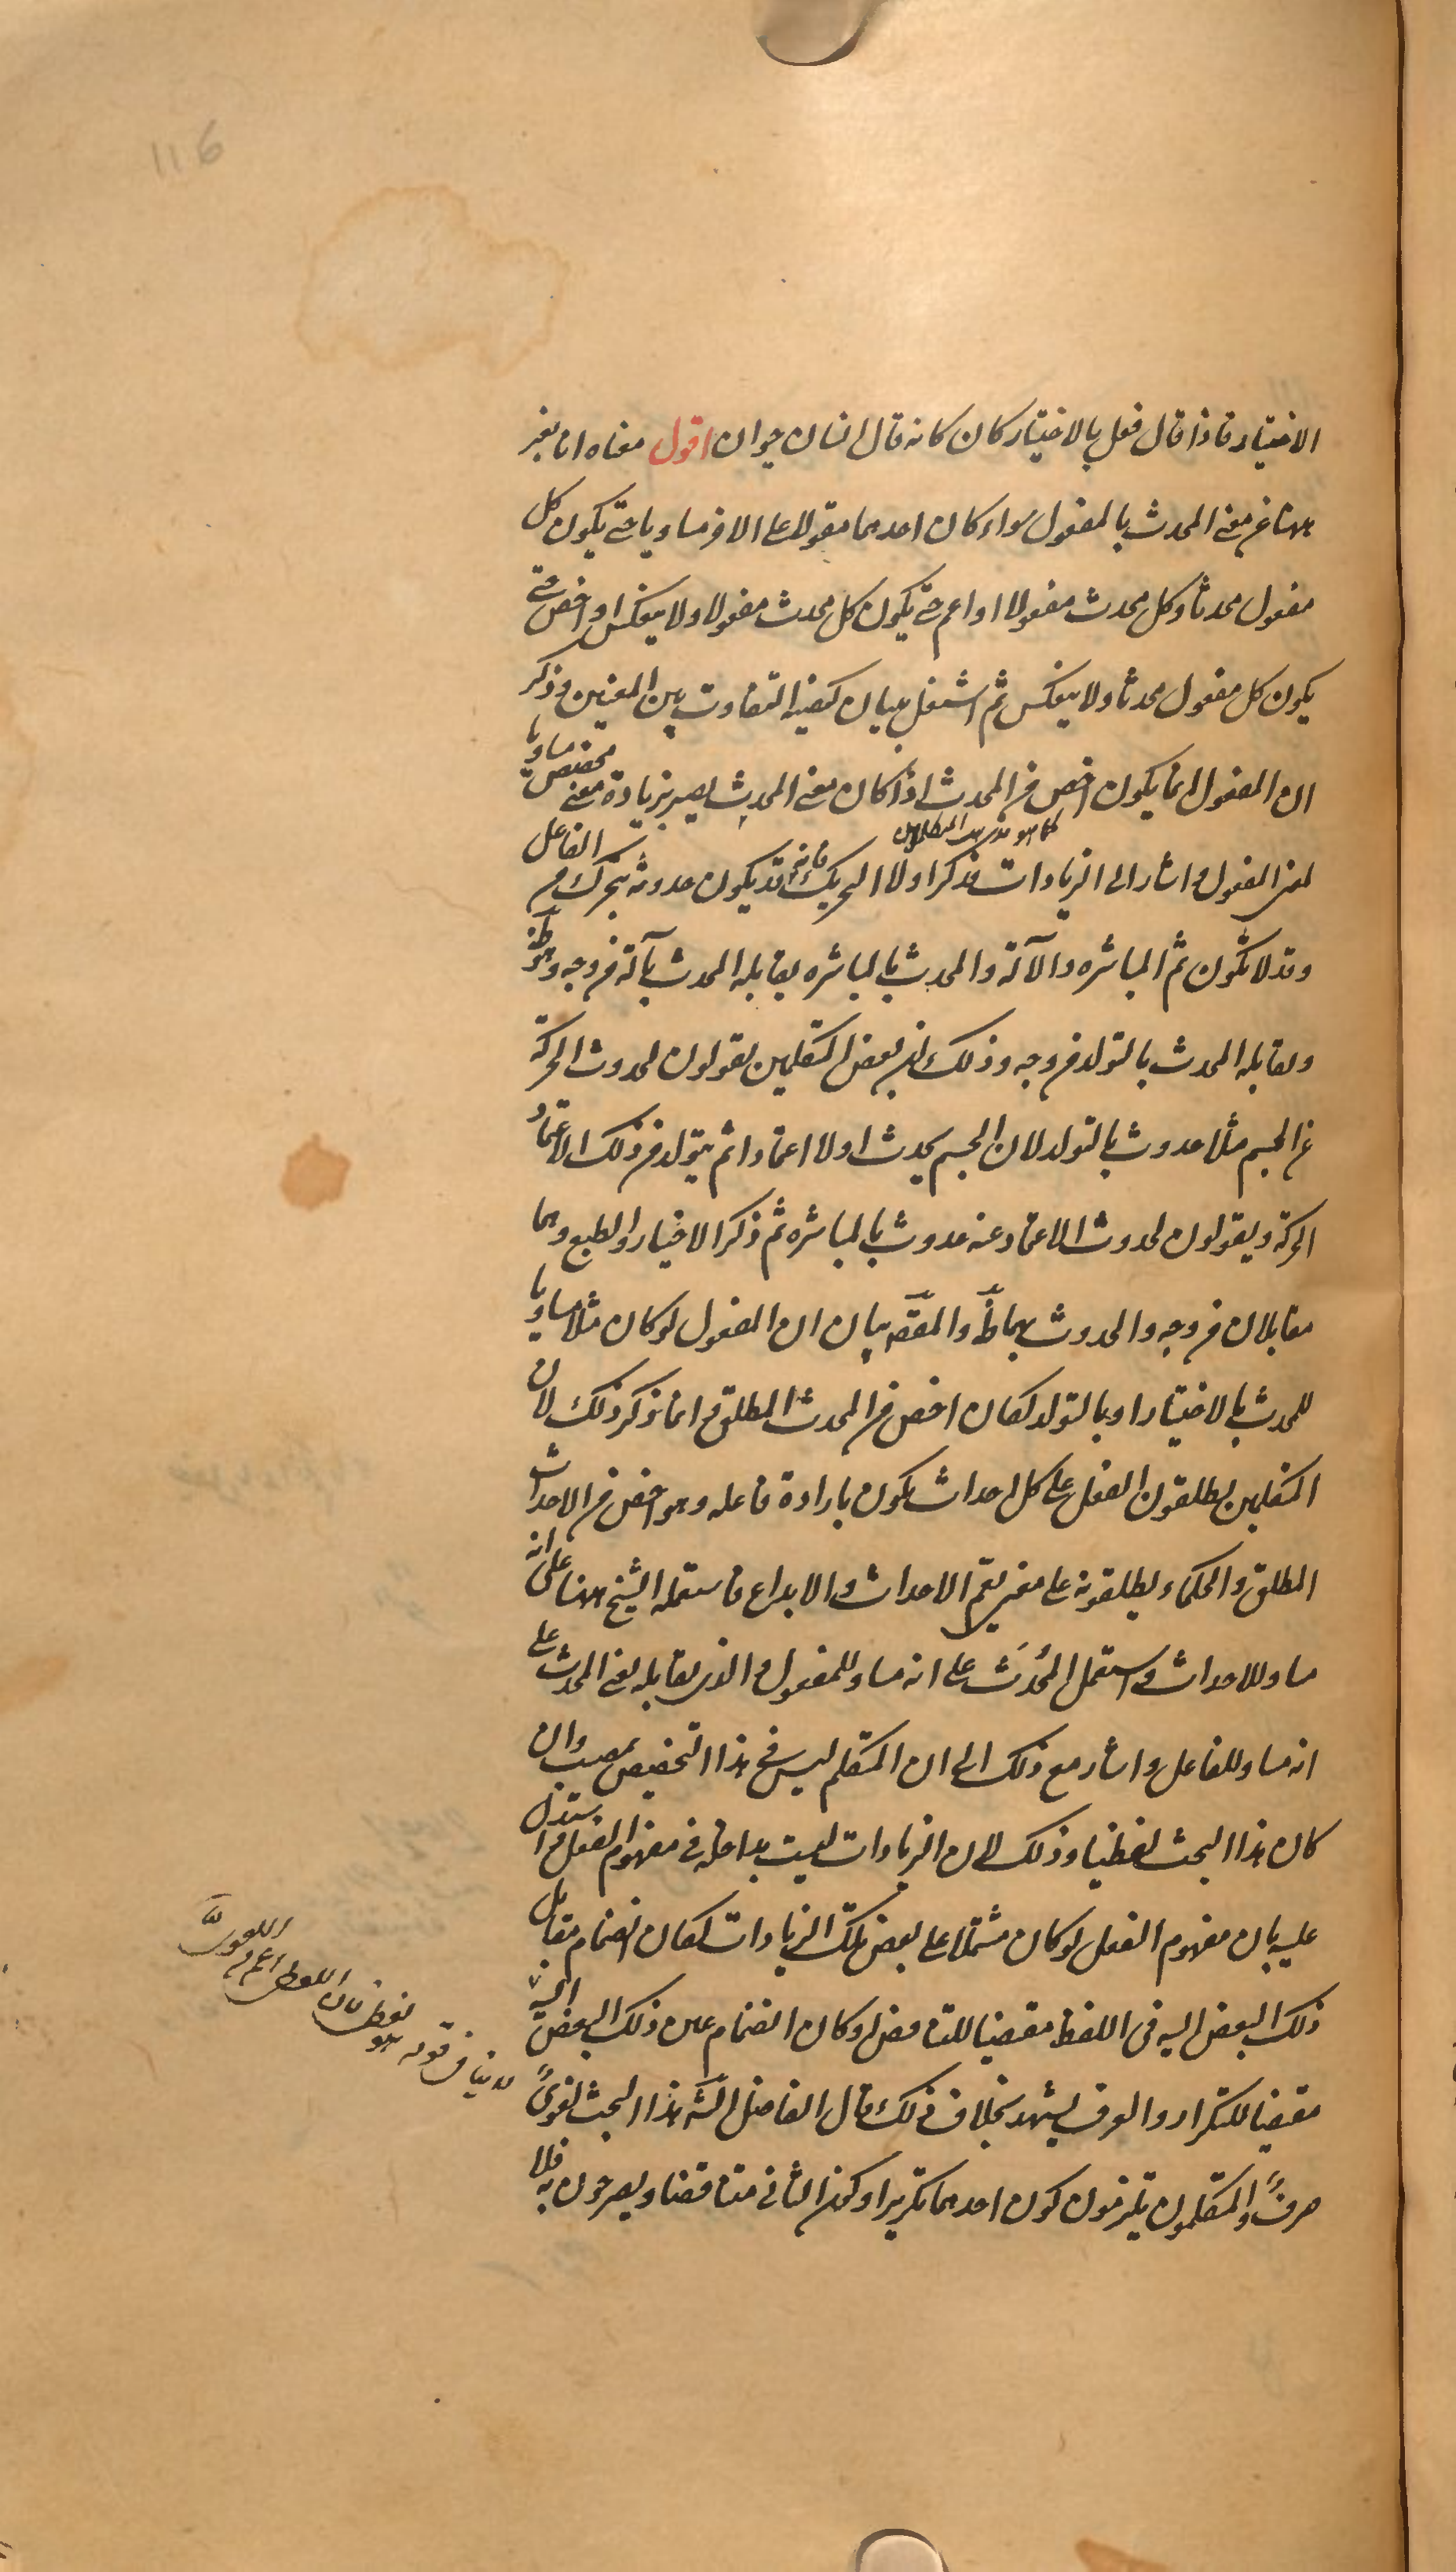 116
الاختيار فاذا قال فعل بالاختيار كان كانه قال انسان حيوان اقول معناه انا نعبر
ههنا عن معنى المحدث بالمفعول سواء كان احدهما مقولا على الاخر مساويا حتى يكون كل
مفعول محدثا وكل محدث مفعولا او اعم حتى يكون كل محدث مفعولا ولا ينعكس او اخص حتى
يكون كل مفعول محدثا ولا ينعكس ثم اشتغل ببيان كيفية التفاوت بين المعنيين وذكر
ان المفعول انما يكون اخص من المحدث اذا كان معنى المحدث يصير بزيادة معنى مخصص مساويا
كما هو مذهب المتكلمين
لمعنى المفعول واشار الى الزيادات فذكر اولا التحريك فانه قد يكون حدوثه بتحرك من الفاعل
وقد لا تكون ثم المباشره والآلة والمحدث بالمباشره يقابله المحدث بآلة من وجه وهو ظ
ويقابله المحدث بالتولد من وجه وذلك لان بعض المتكلمين يقولون لحدوث الحركة
عن الجسم مثلا حدوث بالتولد لان الجسم يحدث اولا اعتمادا ثم يتولد من ذلك الاعتماد
الحركة ويقولون لحدوث الاعتماد عنه حدوث بالمباشره ثم ذكر الاختيار والطبع وهما
متقابلان من وجه والحدوث بهما ظ والمقصد بيان ان المفعول لو كان مثلا مساويا
للمحدث بالاختيار او بالتولد لكان اخص من المحدث المطلق وانما ذكر ذلك لان
المتكلمين يطلقون الفعل على كل احداث يكون بارادة فاعله وهو اخص من الاحداث
المطلق والحكماء يطلقونه على معنى يعم الاحداث والابداع فاستعمله الشيخ ههنا على انه
مساو للاحداث واستعمل المحدَث على انه مساو للمفعول والذى يقابله يعنى المحدث على
انه مساو للفاعل واشار مع ذلك الى ان المتكلم ليس فى هذا التخصيص بمصيب وان
كان هذا البحث لفظيا وذلك لان الزيادات ليست بداخلة فى مفهوم الفعل واستدل
عليه بان مفهوم الفعل لو كان مشتملا على بعض تلك الزيادات لكان انضمام مقابل
ذلك البعض اليه فى اللفظ مقتضيا للتناقض وكان انضمام عين ذلك البعض اليه
مقتضيا للتكرار والعرف يشهد بخلاف ذلك قال الفاضل الش هذا البحث لغوى
صرف والمتكلمون يلتزمون كون احدهما تكريرا وكون الثانى متناقضا ويصرحون به فلا
لا ينافى قوله هو
لفظى فان اللفظى اعم من
اللغوى